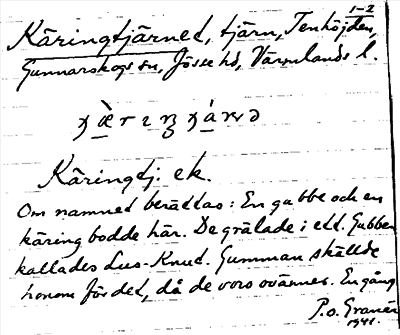 1-2
Käringtjärnet, tjärn, Tenhöjden,
Gunnarskogs sn, Jösse hd, Värmlands l.
Käringtj. ek.
Om namnet berättas: En gubbe och en
käring bodde här. De grälade i ett. Gubben
kallades Lus-Knut. Gumman skällde
honom för det, då de voro ovänner. En gång
P.O. Granér
1941.